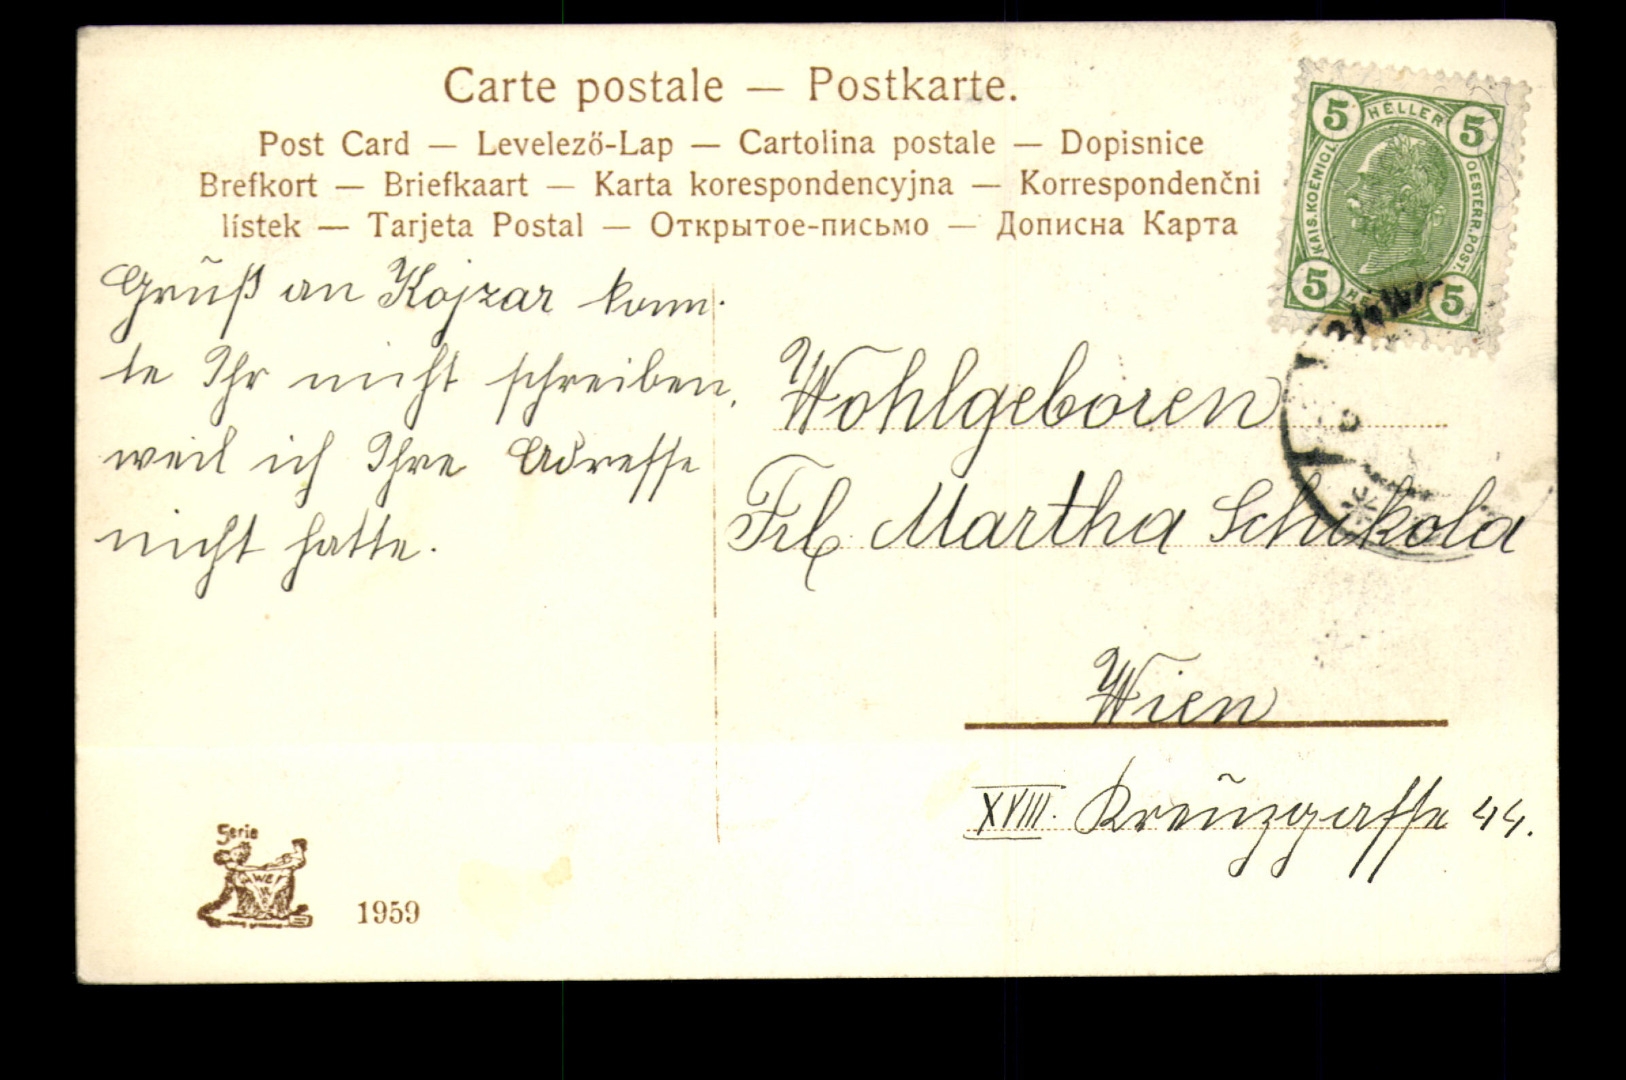 Carte postale — Postkarte.
Post Card — Levelező-Lap — Cartolina postale — Dopisnice
Brefkort — Briefkaart — Karta korespondencyjna — Korrespondenčni
lístek — Tarjeta Postal — Открытое-письмо — Дописна Карта
5 HELLER 5
KAIS. KOENIGL. OESTERR. POST.
5 5
Gruß an Kojzar konn-
te Ihr nicht schreiben,
weil ich Ihre Adresse
nicht hatte.
Wohlgeboren
Frl. Martha Schikola
Wien
XVIII. Kreuzgasse 44.
Serie
1959